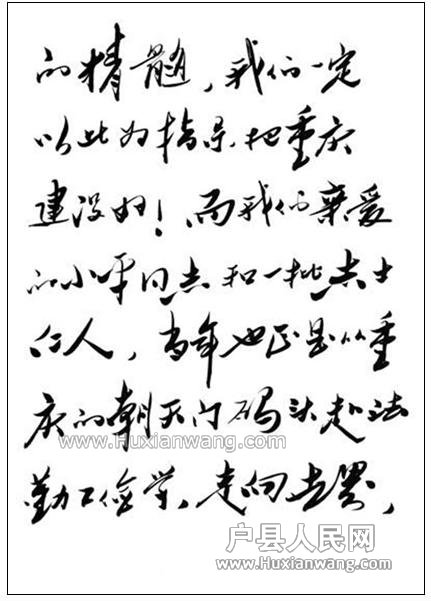 的精髓，我们一定
以此为指导把重庆
建设好！而我们亲爱
的小平同志和一批志士
仁人，当年也正是从重
庆的朝天门码头赴法
勤工俭学，走向世界，
www.Huxianwang.com
户县人民网
www.Huxianwang.com